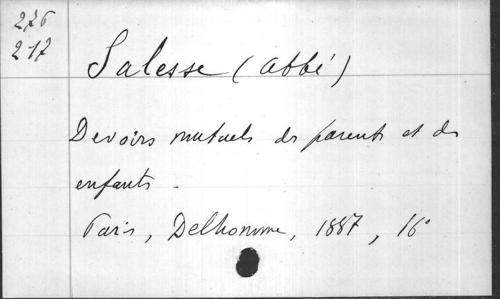 276
217
Salesse (abbé)
Devoirs mutuels des parents et des
enfants.
Paris, Delhomme, 1887, 16°